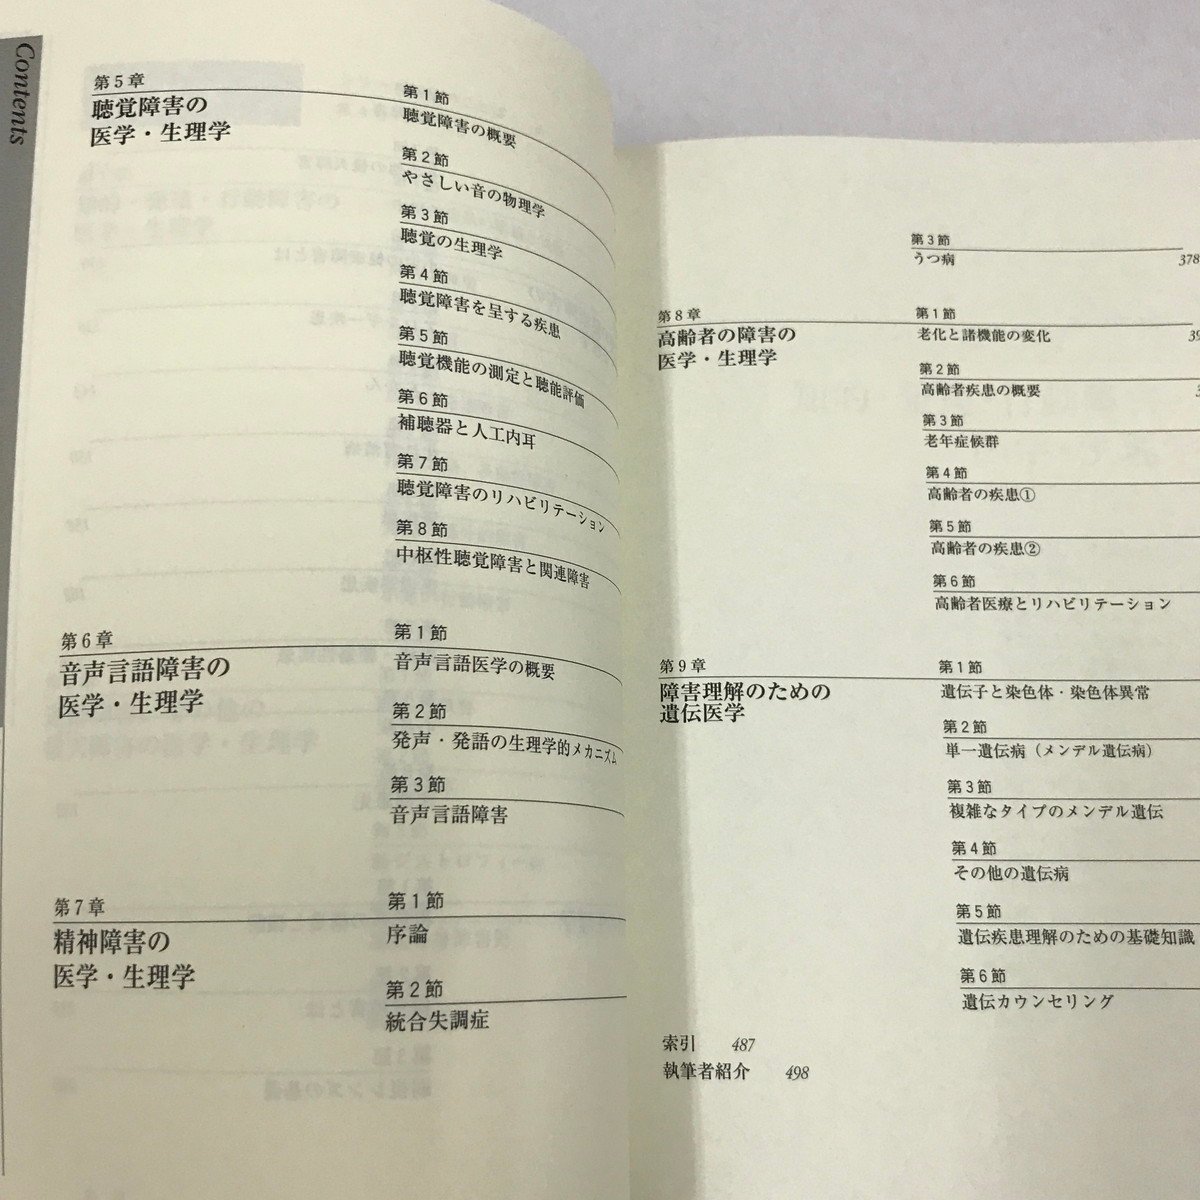 Contents
第5章
聴覚障害の
医学・生理学
第1節
聴覚障害の概要
第2節
やさしい音の物理学
第3節
聴覚の生理学
第4節
聴覚障害を呈する疾患
第5節
聴覚機能の測定と聴能評価
第6節
補聴器と人工内耳
第7節
聴覚障害のリハビリテーション
第8節
中枢性聴覚障害と関連障害
第6章
音声言語障害の
医学・生理学
第1節
音声言語医学の概要
第2節
発声・発語の生理学的メカニズム
第3節
音声言語障害
第7章
精神障害の
医学・生理学
第1節
序論
第2節
統合失調症
第3節
うつ病 378
第8章
高齢者の障害の
医学・生理学
第1節
老化と諸機能の変化
第2節
高齢者疾患の概要
第3節
老年症候群
第4節
高齢者の疾患①
第5節
高齢者の疾患②
第6節
高齢者医療とリハビリテーション
第9章
障害理解のための
遺伝医学
第1節
遺伝子と染色体・染色体異常
第2節
単一遺伝病（メンデル遺伝病）
第3節
複雑なタイプのメンデル遺伝
第4節
その他の遺伝病
第5節
遺伝疾患理解のための基礎知識
第6節
遺伝カウンセリング
索引 487
執筆者紹介 498